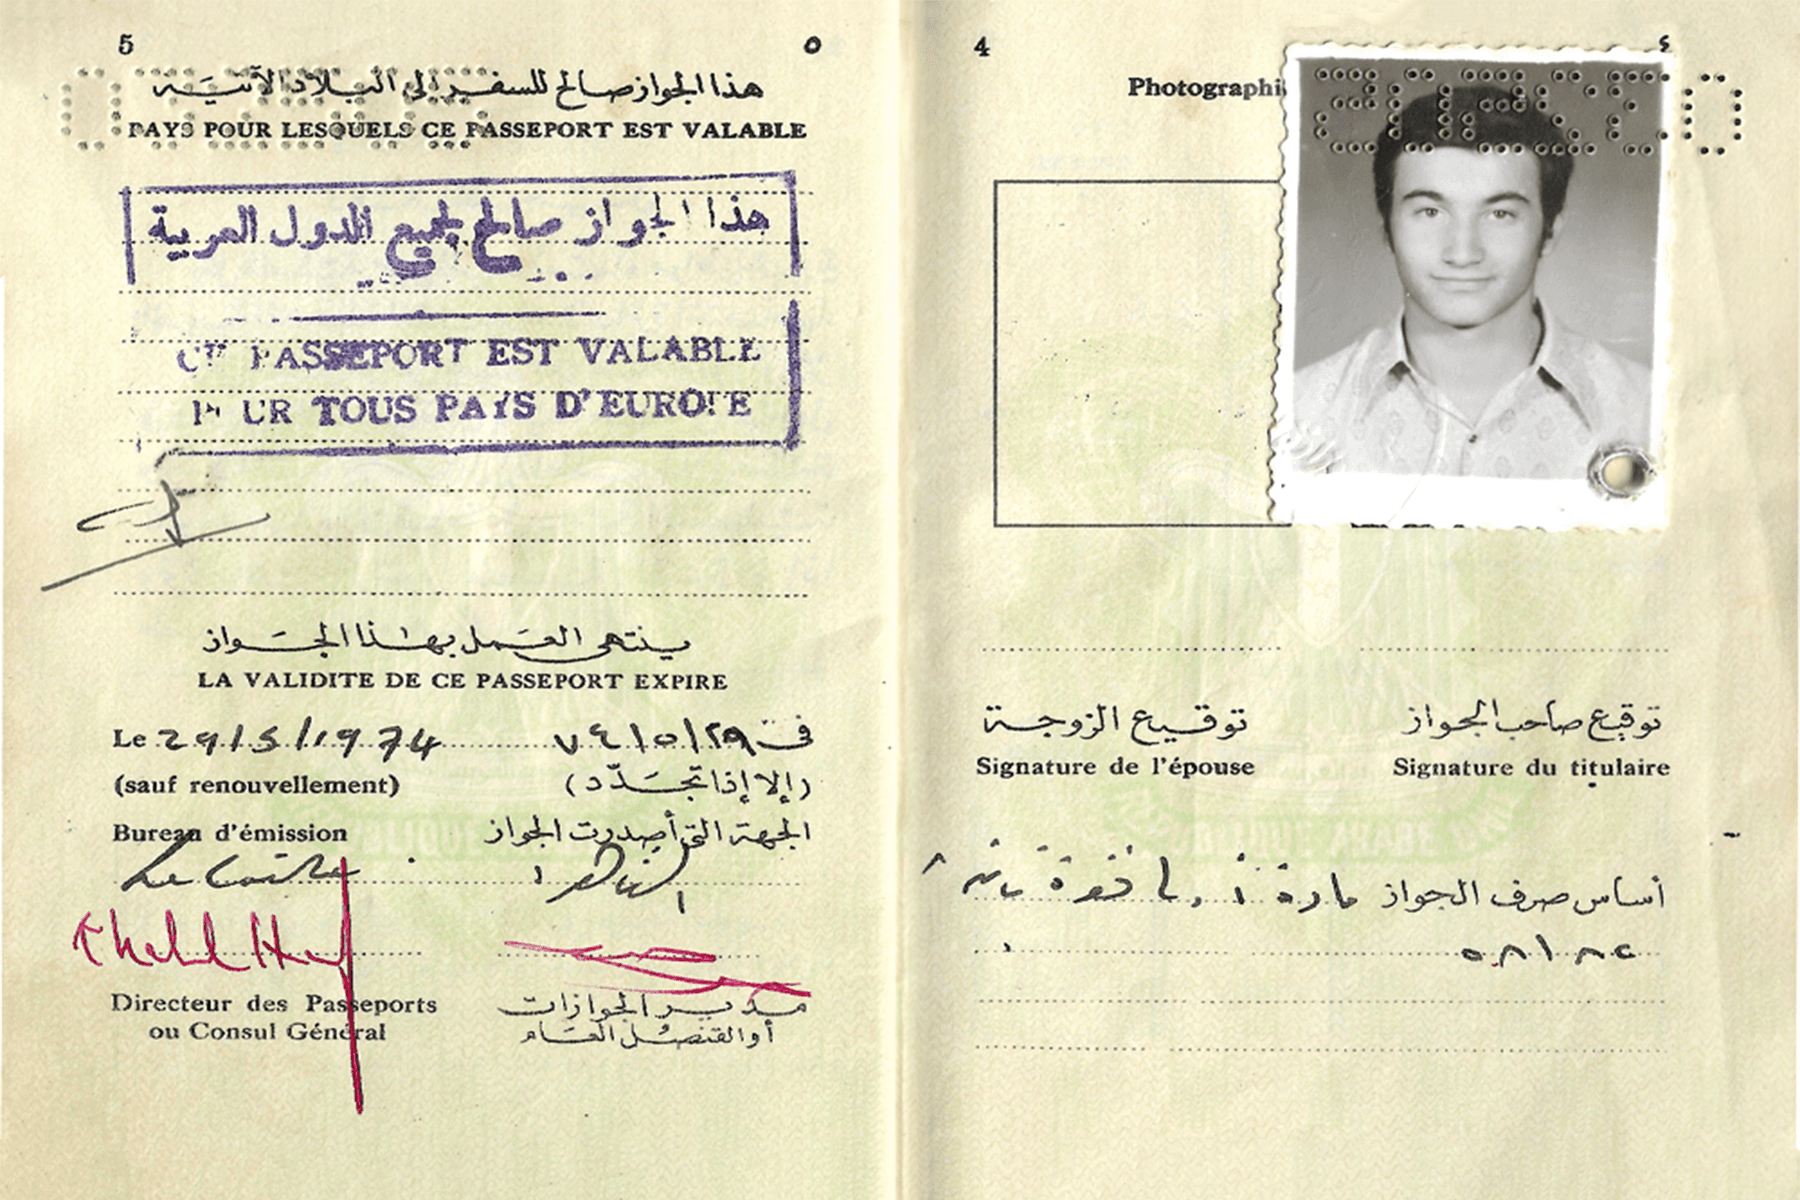 5 ٥
هذا الجواز صالح للسفر إلى البلاد الآتية
PAYS POUR LESQUELS CE PASSEPORT EST VALABLE
هذا الجواز صالح لجميع الدول العربية
CE PASSEPORT EST VALABLE
POUR TOUS PAYS D'EUROPE
ينتهى العمل بهذا الجواز
LA VALIDITE DE CE PASSEPORT EXPIRE
Le 29/5/1974 فى ٧٤/٥/٢٩
(sauf renouvellement) (إلا إذا تجدّد)
Bureau d'émission الجهة التى أصدرت الجواز
Le Caire القاهرة
Directeur des Passeports مدير الجوازات
ou Consul Général أو القنصل العام
4 ٤
Photographi
توقيع الزوجة توقيع صاحب الجواز
Signature de l'épouse Signature du titulaire
أساس صرف الجواز مادة